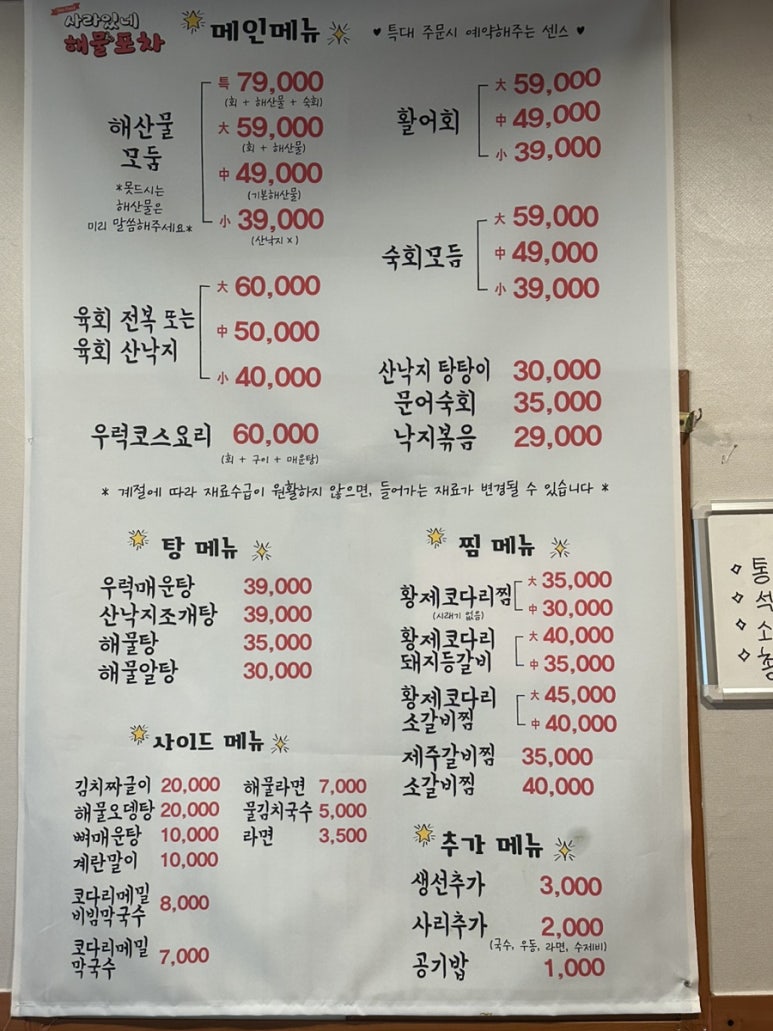 사라있네
해물포차
메인메뉴
♥ 특대 주문시 예약해주는 센스 ♥
해산물
모둠
*못드시는
해산물은
미리 말씀해주세요*
特 79,000
(회 + 해산물 + 숙회)
大 59,000
(회 + 해산물)
中 49,000
(기본해산물)
小 39,000
(산낙지 x)
활어회
大 59,000
中 49,000
小 39,000
숙회모듬
大 59,000
中 49,000
小 39,000
육회 전복 또는
육회 산낙지
大 60,000
中 50,000
小 40,000
우럭코스요리 60,000
(회 + 구이 + 매운탕)
산낙지 탕탕이 30,000
문어숙회 35,000
낙지볶음 29,000
* 계절에 따라 재료수급이 원활하지 않으면, 들어가는 재료가 변경될 수 있습니다 *
탕 메뉴
우럭매운탕 39,000
산낙지조개탕 39,000
해물탕 35,000
해물알탕 30,000
찜 메뉴
황제코다리찜
(시래기 없음)
大 35,000
中 30,000
황제코다리
돼지등갈비
大 40,000
中 35,000
황제코다리
소갈비찜
大 45,000
中 40,000
제주갈비찜 35,000
소갈비찜 40,000
사이드 메뉴
김치짜글이 20,000
해물오뎅탕 20,000
뼈매운탕 10,000
계란말이 10,000
코다리메밀
비빔막국수 8,000
코다리메밀
막국수 7,000
해물라면 7,000
물김치국수 5,000
라면 3,500
추가 메뉴
생선추가 3,000
사리추가 2,000
(국수, 우동, 라면, 수제비)
공기밥 1,000
◇ 통
◇ 석
◇ 소